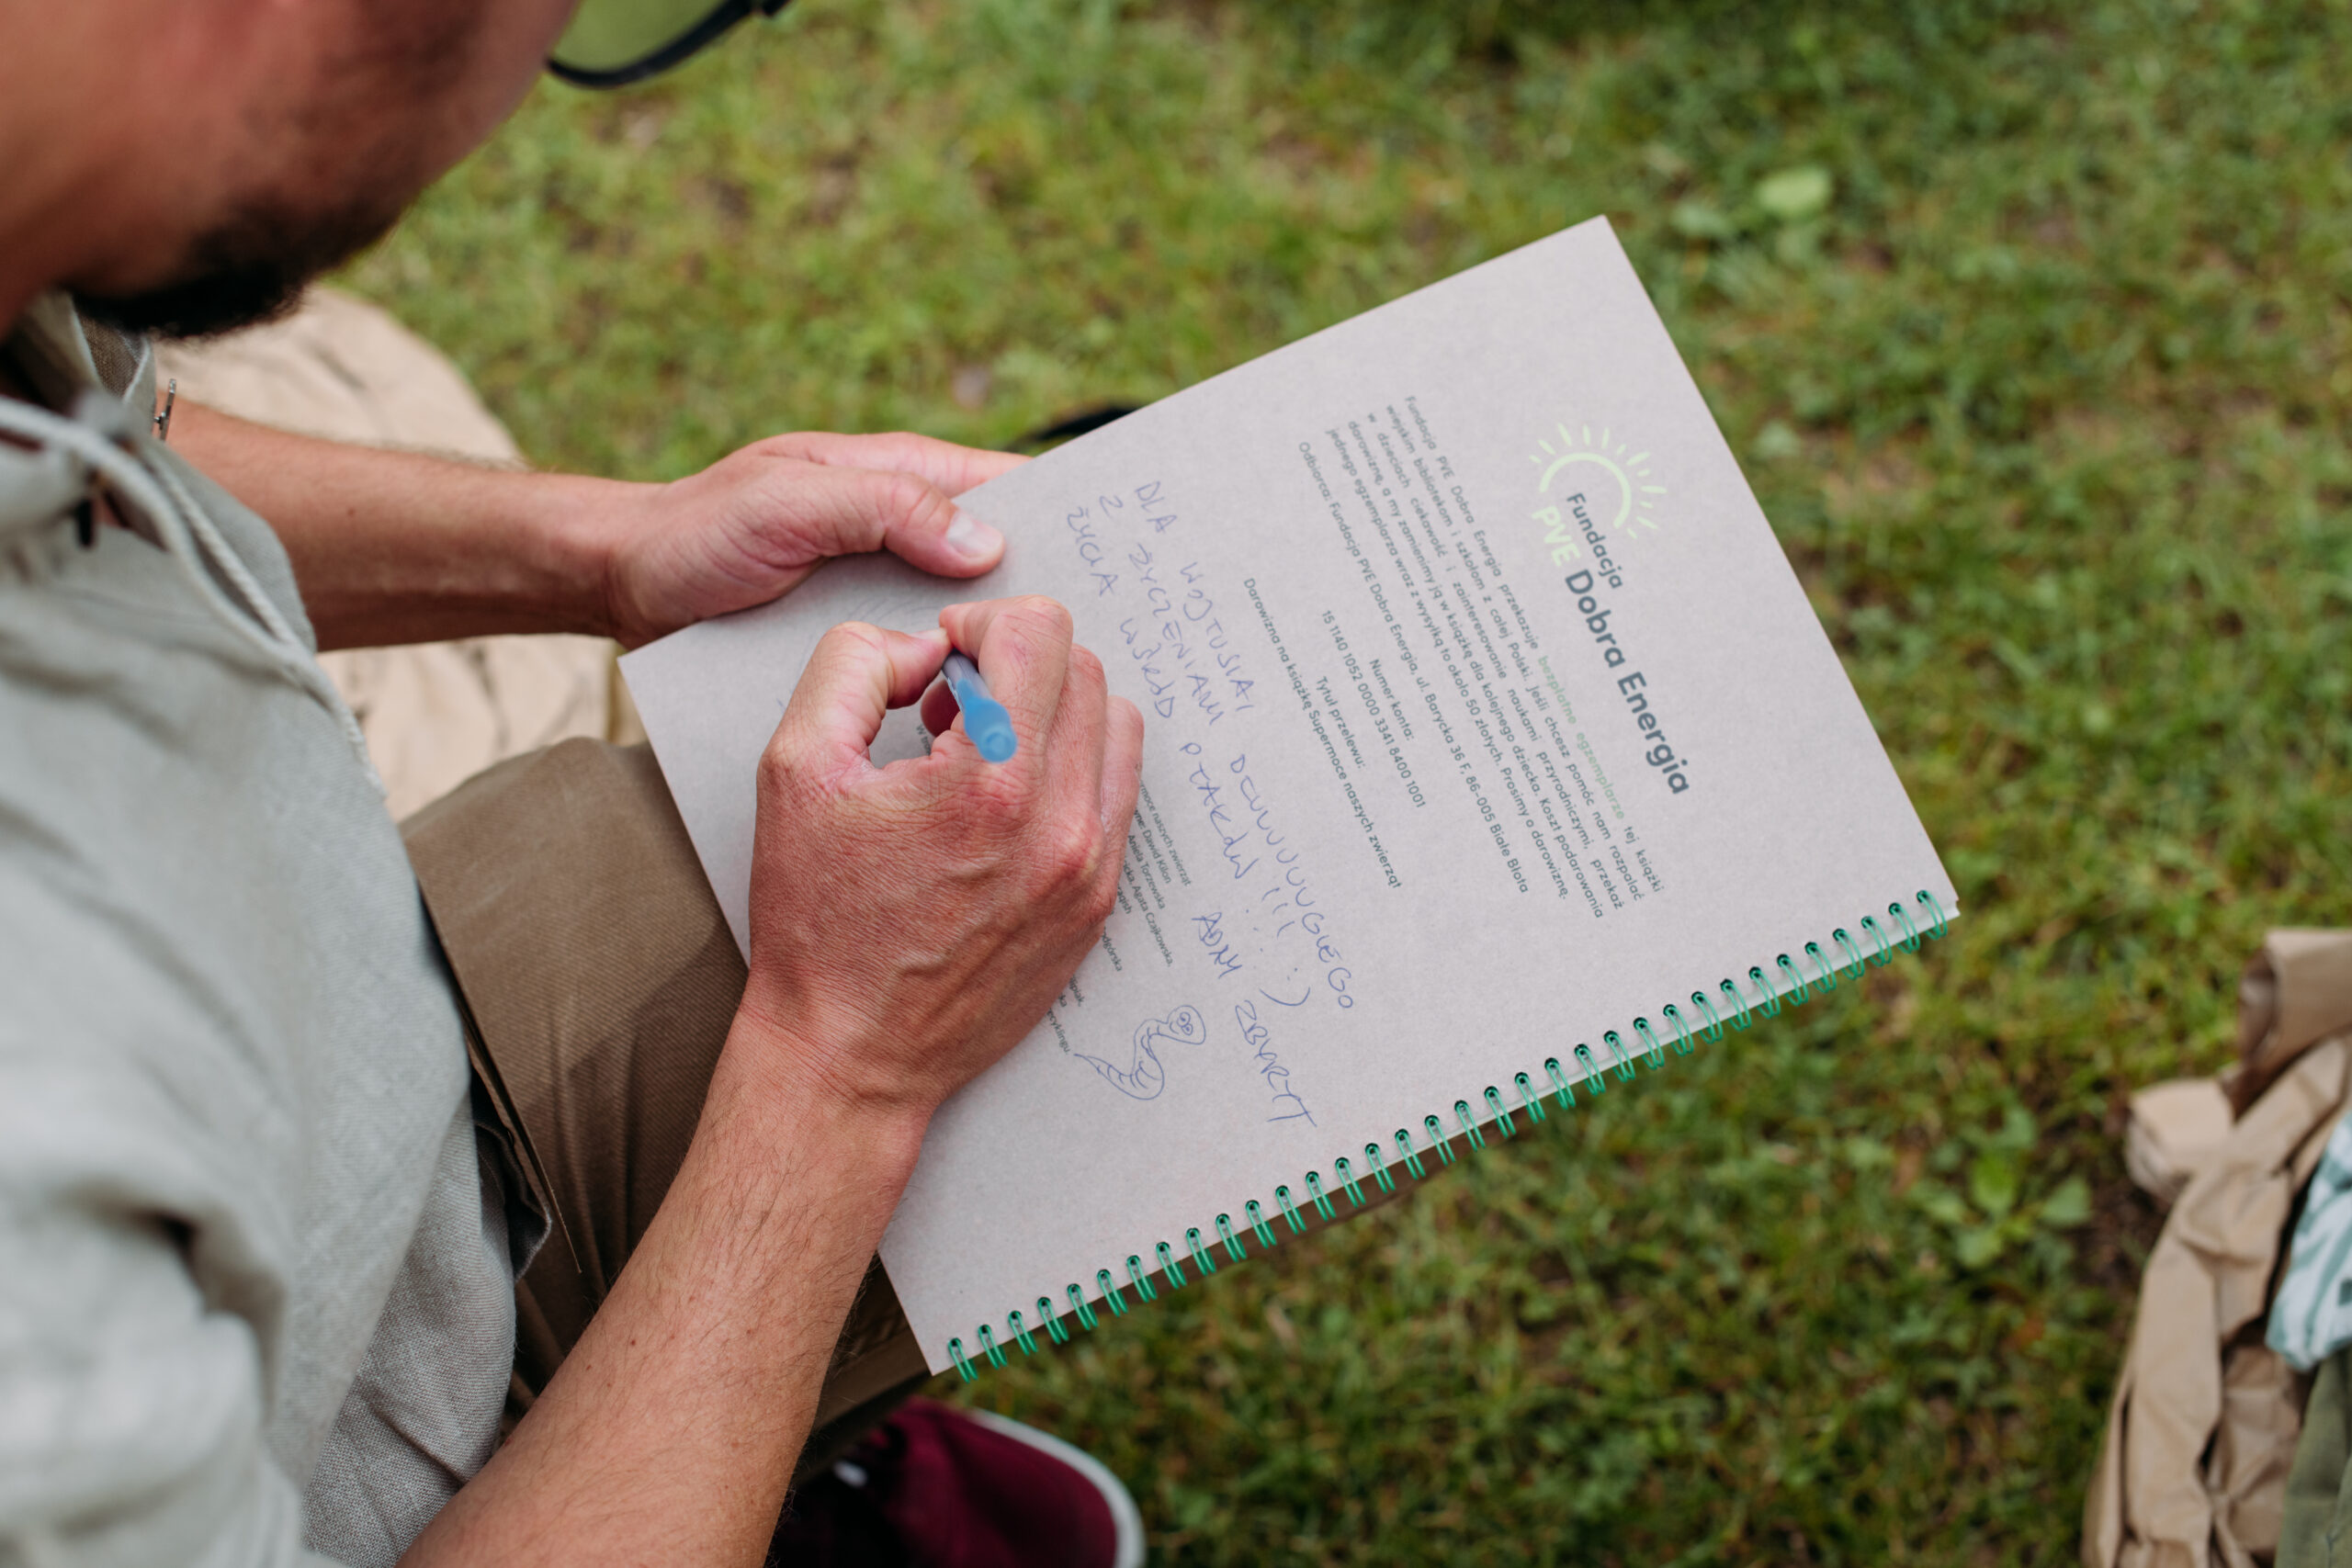 Fundacja
PVE Dobra Energia
Fundacja PVE Dobra Energia przekazuje bezpłatne egzemplarze tej książki
wiejskim bibliotekom i szkołom z całej Polski. Jeśli chcesz pomóc nam rozpalać
w dzieciach ciekawość i zainteresowanie naukami przyrodniczymi, przekaż
darowiznę, a my zamienimy ją w książkę dla kolejnego dziecka. Koszt podarowania
jednego egzemplarza wraz z wysyłką to około 50 złotych. Prosimy o darowiznę.
Odbiorca: Fundacja PVE Dobra Energia, ul. Barycka 36 F, 86-005 Białe Błota
Numer konta:
15 1140 1052 0000 3341 8400 1001
Tytuł przelewu:
Darowizna na książkę Supermoce naszych zwierząt
DLA WOJTUSIA!
Z ŻYCZENIAMI DŁUUUUUUGIEGO
ŻYCIA WŚRÓD PTAKÓW !!! :)
ADAM ZBYRYT
rmoce naszych zwierząt
wne: Dawid Kilon
Aniela Torzewska
cka, Agata Czajkowska,
odgórska